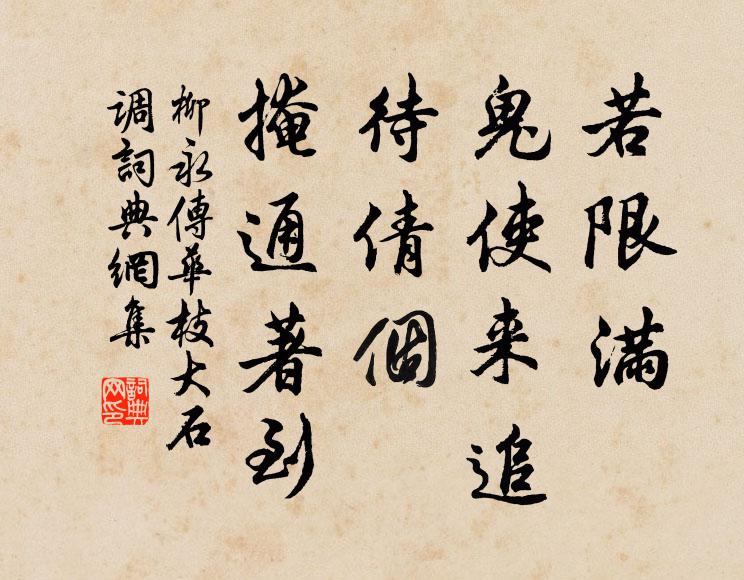 若限滿
鬼使来追
待倩個
掩通著到
柳永傳華枝大石
調詞典網集
詞典网印